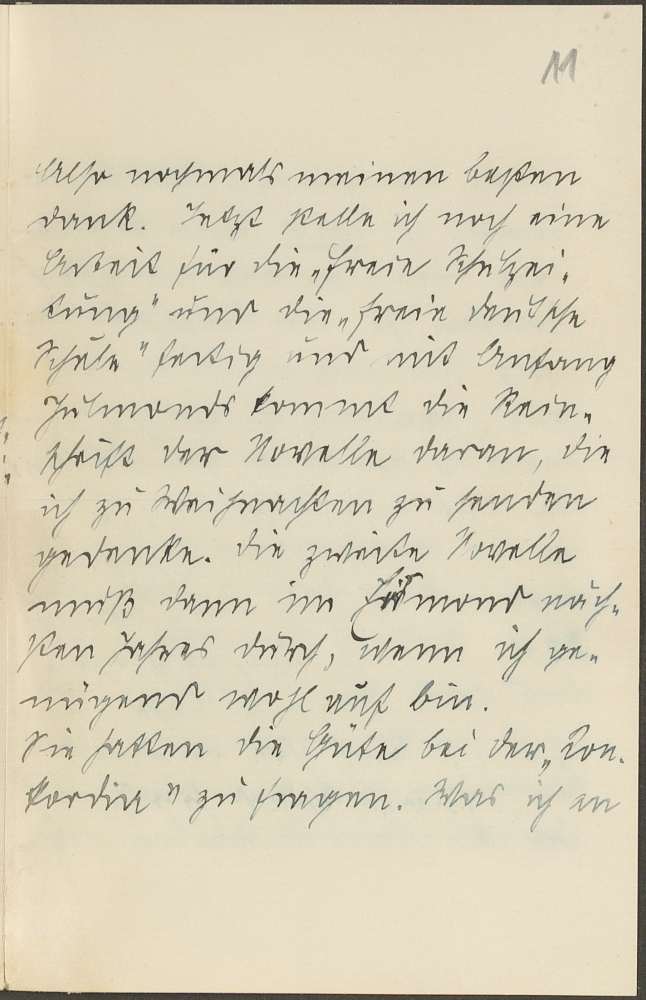 11
Also nochmals meinen besten
Dank. Jetzt stelle ich noch eine
Arbeit für die „Freie Schulzei-
tung" und die „Freie deutsche
Schule" fertig und mit Anfang
Julmonds kommt die Rein-
schrift der Novelle daran, die
ich zu Weihnachten zu senden
gedenke. Die zweite Novelle
muß dann im
näch-
sten Jahres durch, wenn ich ge-
nügend wohlauf bin.
Sie hatten die Güte bei der „Kon-
kordia" zu fragen. Was ich an